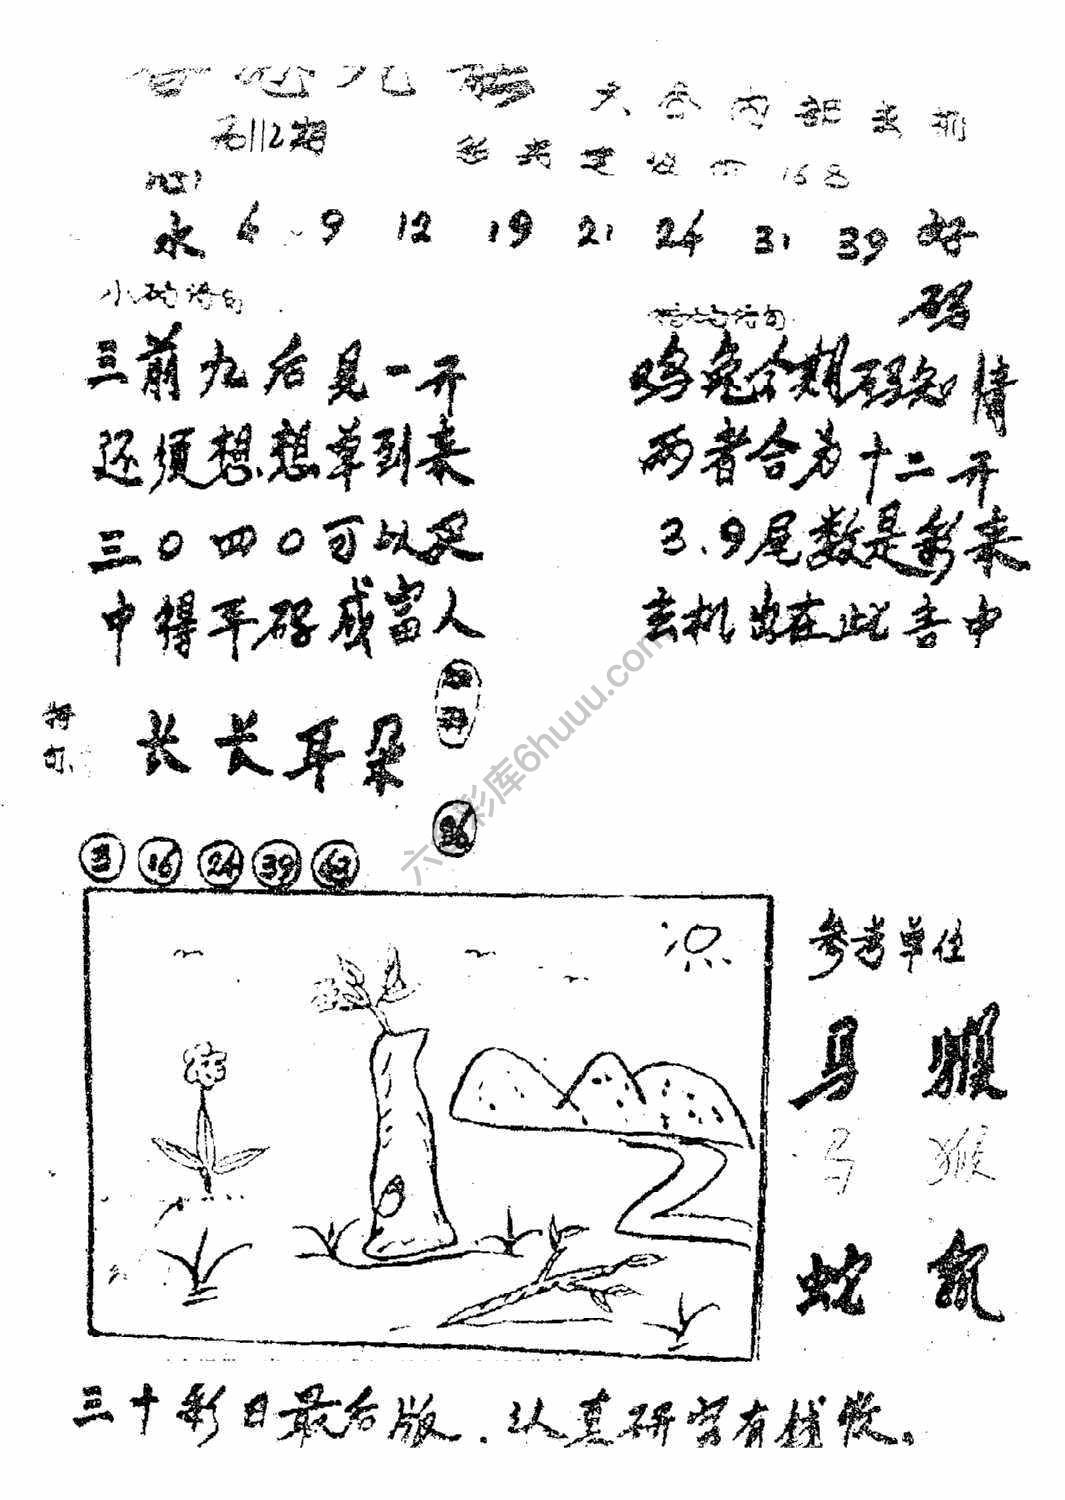 六合内部玄机
第112期
168
水 6 9 12 19 21 24 31 39 好码
小码诗句
三前九后见一开
还须想想草到来
三0四0可以买
中得平码成富人
鸡兔合期码知情
两者合为十二开
3.9尾数是彩来
玄机出在此书中
特句
长长耳朵
3 16 24 39 43
36
参考单位
马 猴
马 猴
蛇 鼠
三十彩日最后版.认真研究有钱收。
六合彩库6huuu.com